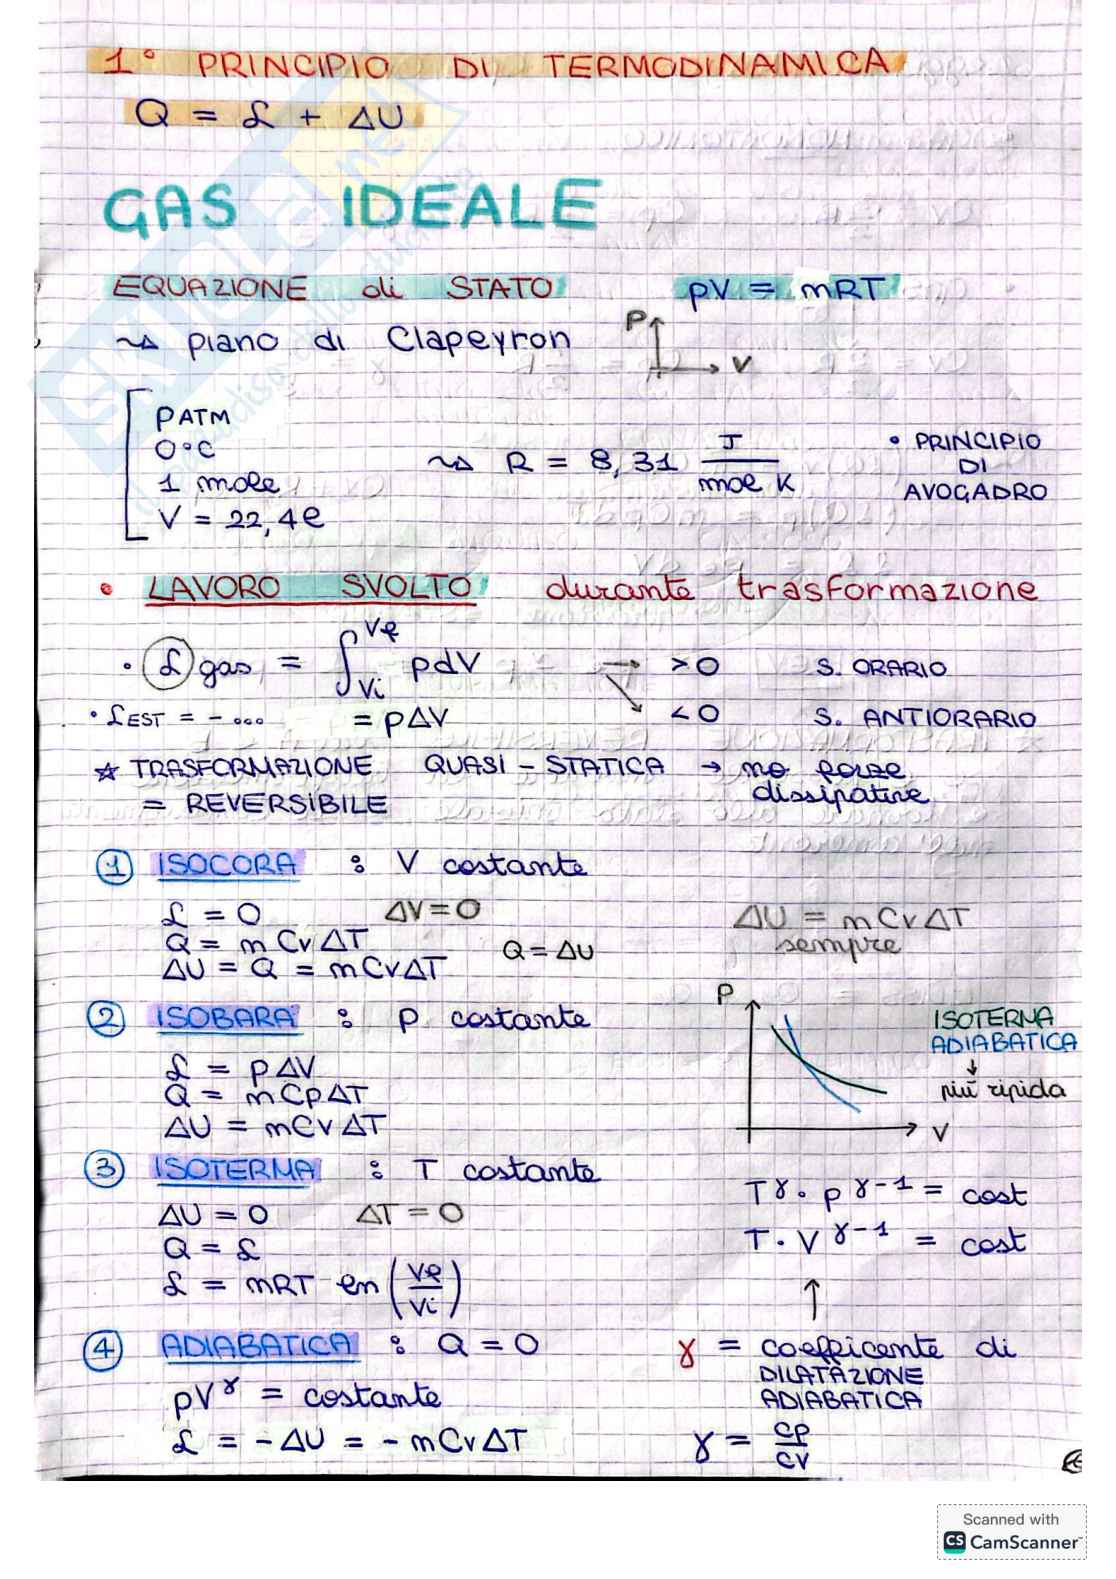 1° PRINCIPIO DI TERMODINAMICA
Q = L + ΔU
GAS IDEALE
EQUAZIONE di STATO pV = nRT
⇝ piano di Clapeyron
P
V
PATM
0°C
1 mole
V = 22,4 l
⇝ R = 8,31 J / mol K
• PRINCIPIO DI AVOGADRO
• LAVORO SVOLTO durante trasformazione
• L gas = ∫ Vi Vf pdV → >0 S. ORARIO
• L EST = - ... = pΔV <0 S. ANTIORARIO
☆ TRASFORMAZIONE QUASI-STATICA → no forze dissipative
= REVERSIBILE
① ISOCORA : V costante
L = 0 ΔV = 0
Q = nCvΔT Q = ΔU
ΔU = Q = nCvΔT
ΔU = nCvΔT
sempre
② ISOBARA : P costante
L = pΔV
Q = nCpΔT
ΔU = nCvΔT
P
V
ISOTERMA
ADIABATICA
↓
più ripida
③ ISOTERMA : T costante
ΔU = 0 ΔT = 0
Q = L
L = nRT ln (Vf/Vi)
T^γ · p^γ-1 = cost
T · V^γ-1 = cost
↑
④ ADIABATICA : Q = 0
pV^γ = costante
L = -ΔU = -nCvΔT
γ = coefficente di
DILATAZIONE
ADIABATICA
γ = cp/cv
Scanned with
CS CamScanner